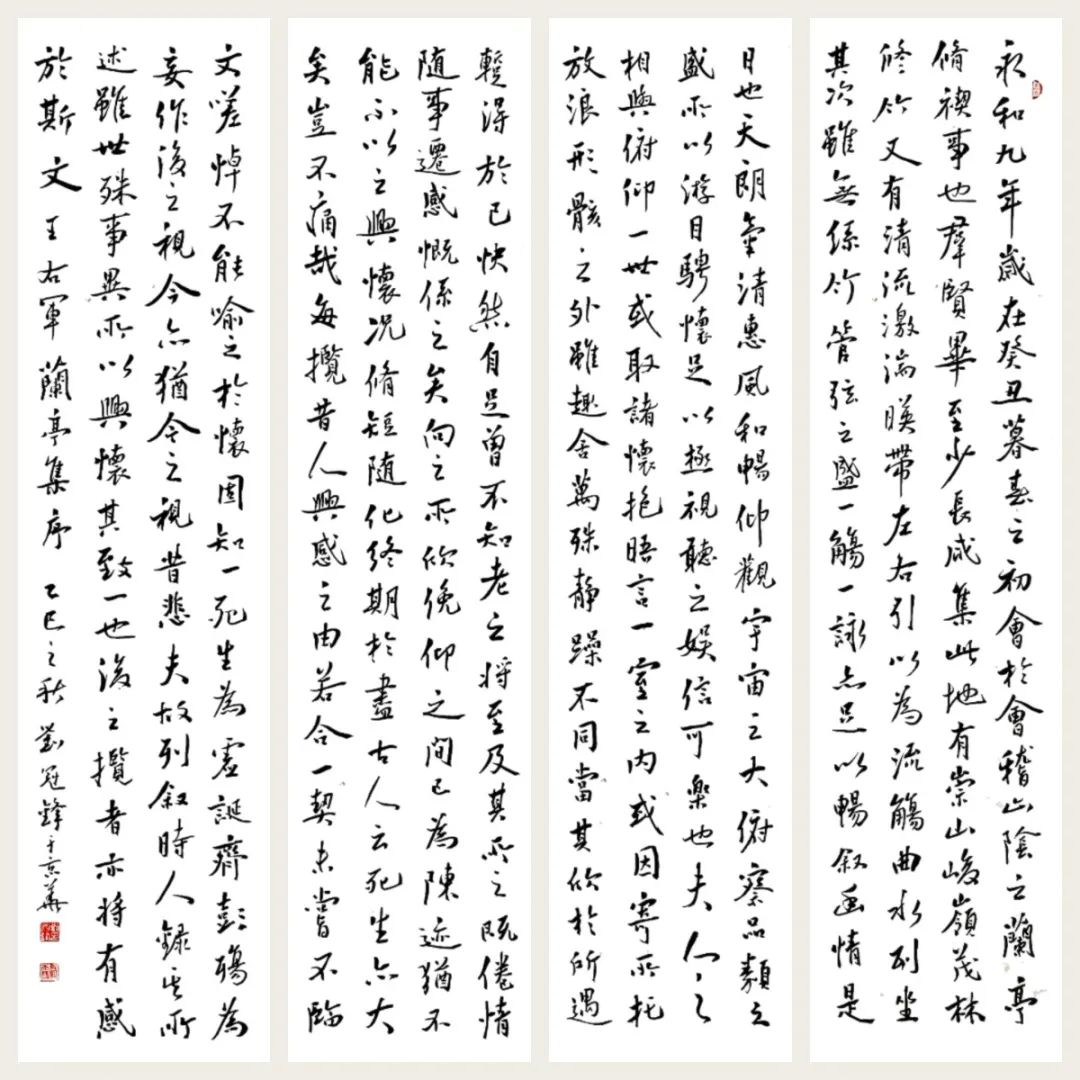 永和九年歲在癸丑暮春之初會於會稽山陰之蘭亭
脩禊事也羣賢畢至少長咸集此地有崇山峻嶺茂林
修竹又有清流激湍暎帶左右引以為流觴曲水列坐
其次雖無絲竹管弦之盛一觴一詠亦足以暢叙幽情是
日也天朗氣清惠風和暢仰觀宇宙之大俯察品類之
盛所以游目騁懷足以極視聽之娛信可樂也夫人之
相與俯仰一世或取諸懷抱晤言一室之內或因寄所托
放浪形骸之外雖趣舍萬殊静躁不同當其欣於所遇
暫得於己快然自足曾不知老之將至及其所之既倦情
隨事遷感慨係之矣向之所欣俛仰之間已為陳迹猶不
能不以之興懷況脩短隨化終期於盡古人云死生亦大
矣豈不痛哉每攬昔人興感之由若合一契未嘗不臨
文嗟悼不能喻之於懷固知一死生為虛誕齊彭殤為
妄作後之視今亦猶今之視昔悲夫故列叙時人錄其所
述雖世殊事異所以興懷其致一也後之攬者亦將有感
於斯文 王右軍蘭亭集序 乙巳之秋劉冠鋒于京華